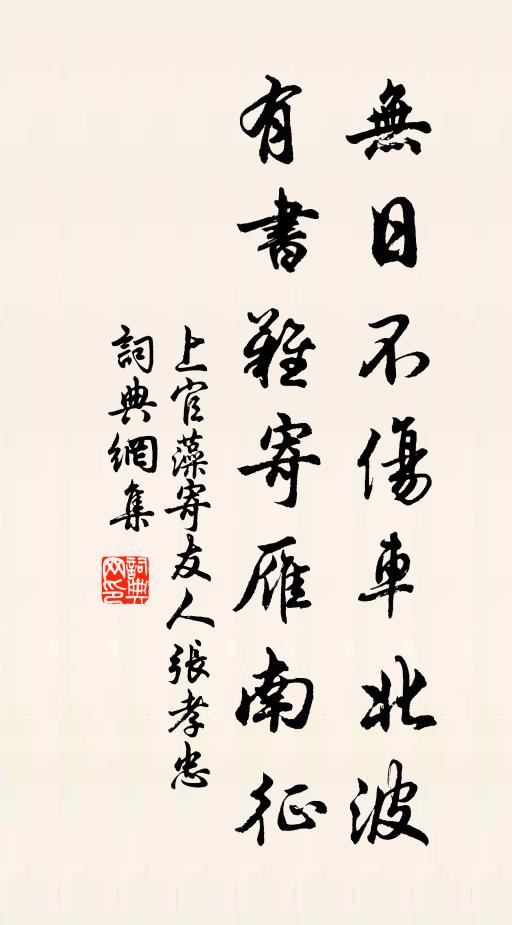 無日不傷車北波
有書難寄雁南征
上官藻寄友人張孝忠
詞典網集
詞典網印